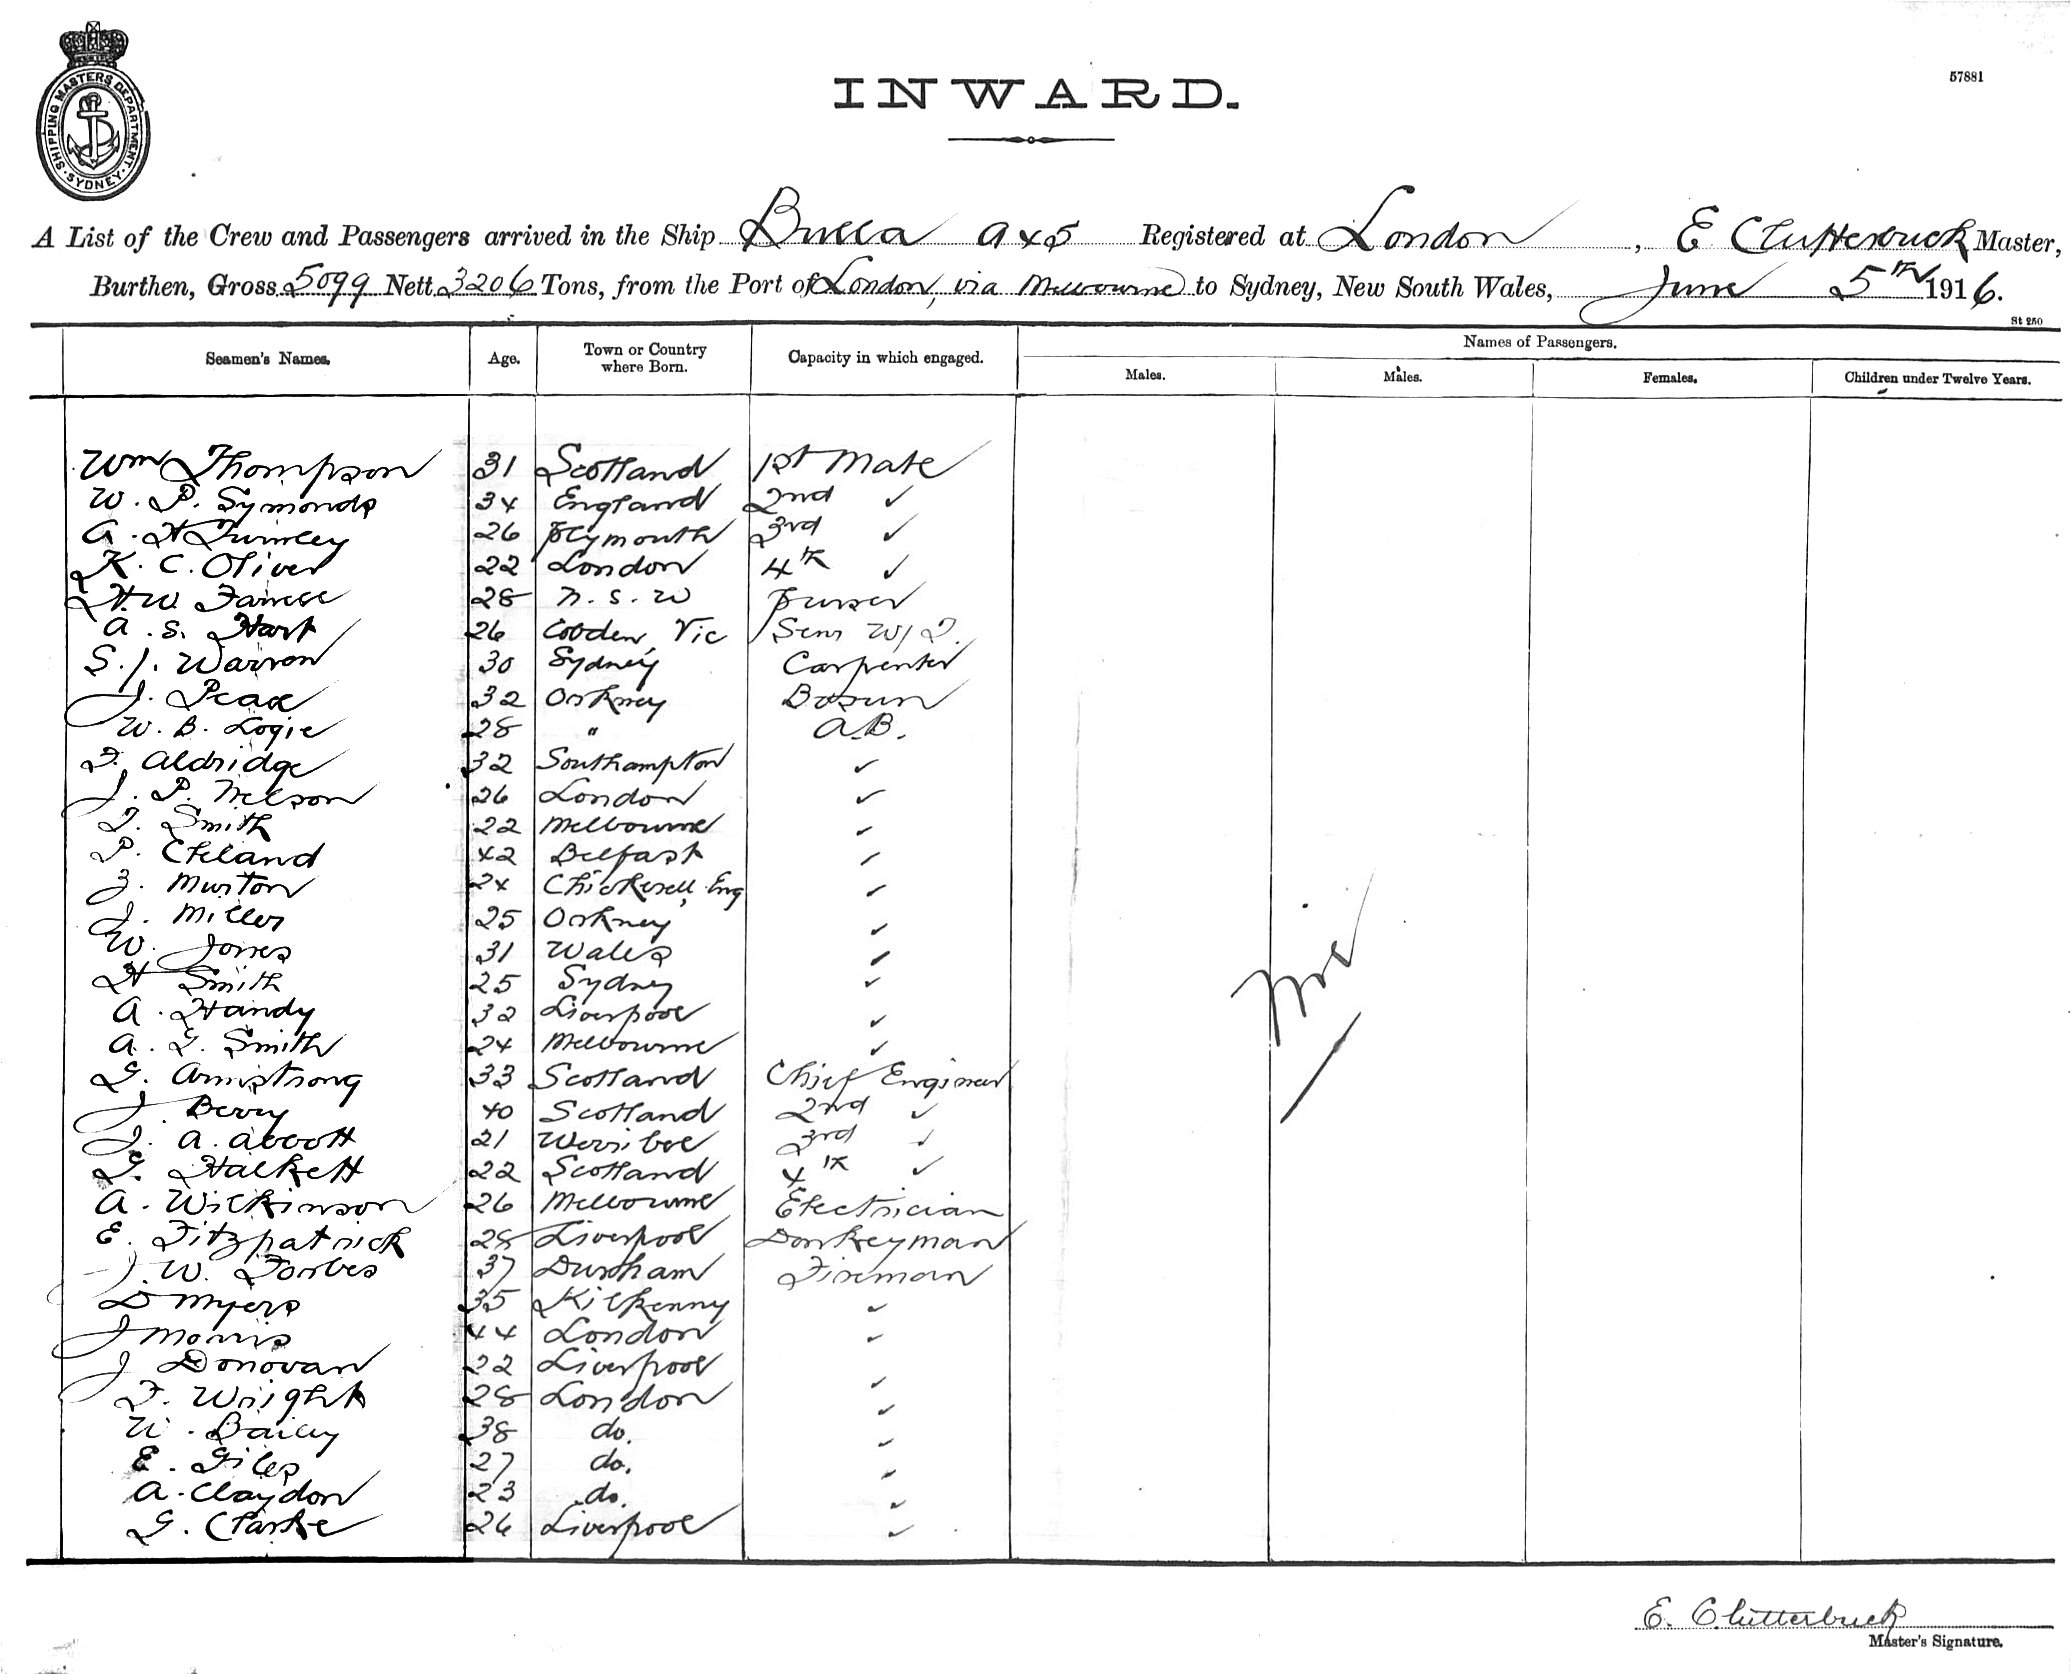 SHIPPING MASTERS DEPARTMENT. SYDNEY.
57881
INWARD.
A List of the Crew and Passengers arrived in the Ship Bulla Registered at London, E Clutterbuck Master,
Burthen, Gross 5099 Nett 3206 Tons, from the Port of London, via Melbourne to Sydney, New South Wales, June 5th 1916.
St 250
Seamen's Names. Age. Town or Country where Born. Capacity in which engaged. Names of Passengers.
Males. Males. Females. Children under Twelve Years.
Wm Thompson 31 Scotland 1st Mate
W. P. Symonds 34 England 2nd ✓
A. H 26 Plymouth 3rd ✓
K. C. Oliver 22 London 4th ✓
H. W. 28 N. S. W Purser
A. S. Hart 26 Cobden, Vic Senr W/T.
S. J. Warren 30 Sydney Carpenter
J. Peace 32 Orkney Bosun
W. B. Logie 28 " A.B.
F. Aldridge 32 Southampton ✓
J. P. Nelson 26 London ✓
T. Smith 22 Melbourne ✓
P. Cleland 42 Belfast ✓
J. Murton 24 Chickerell, Eng ✓
J. Miller 25 Orkney ✓
W. Jones 31 Wales ✓
H Smith 25 Sydney ✓
A. Handy 32 Liverpool ✓
A. G. Smith 24 Melbourne ✓
G. Armstrong 33 Scotland Chief Engineer
J. Berry 40 Scotland 2nd ✓
J. A. Abbott 21 Werribee 3rd ✓
G. Halkett 22 Scotland 4th ✓
A. Wilkinson 26 Melbourne Electrician
E. Fitzpatrick 28 Liverpool Donkeyman
J. W. Forbes 37 Durham Fireman
D Myers 35 Kilkenny ✓
J Morris 44 London ✓
J Donovan 22 Liverpool ✓
F. Wright 28 London ✓
W. Bailey 38 do. ✓
E. Giles 27 do. ✓
A. Claydon 23 do. ✓
G. Clarke 26 Liverpool ✓
Nil
E. Clutterbuck
Master's Signature.